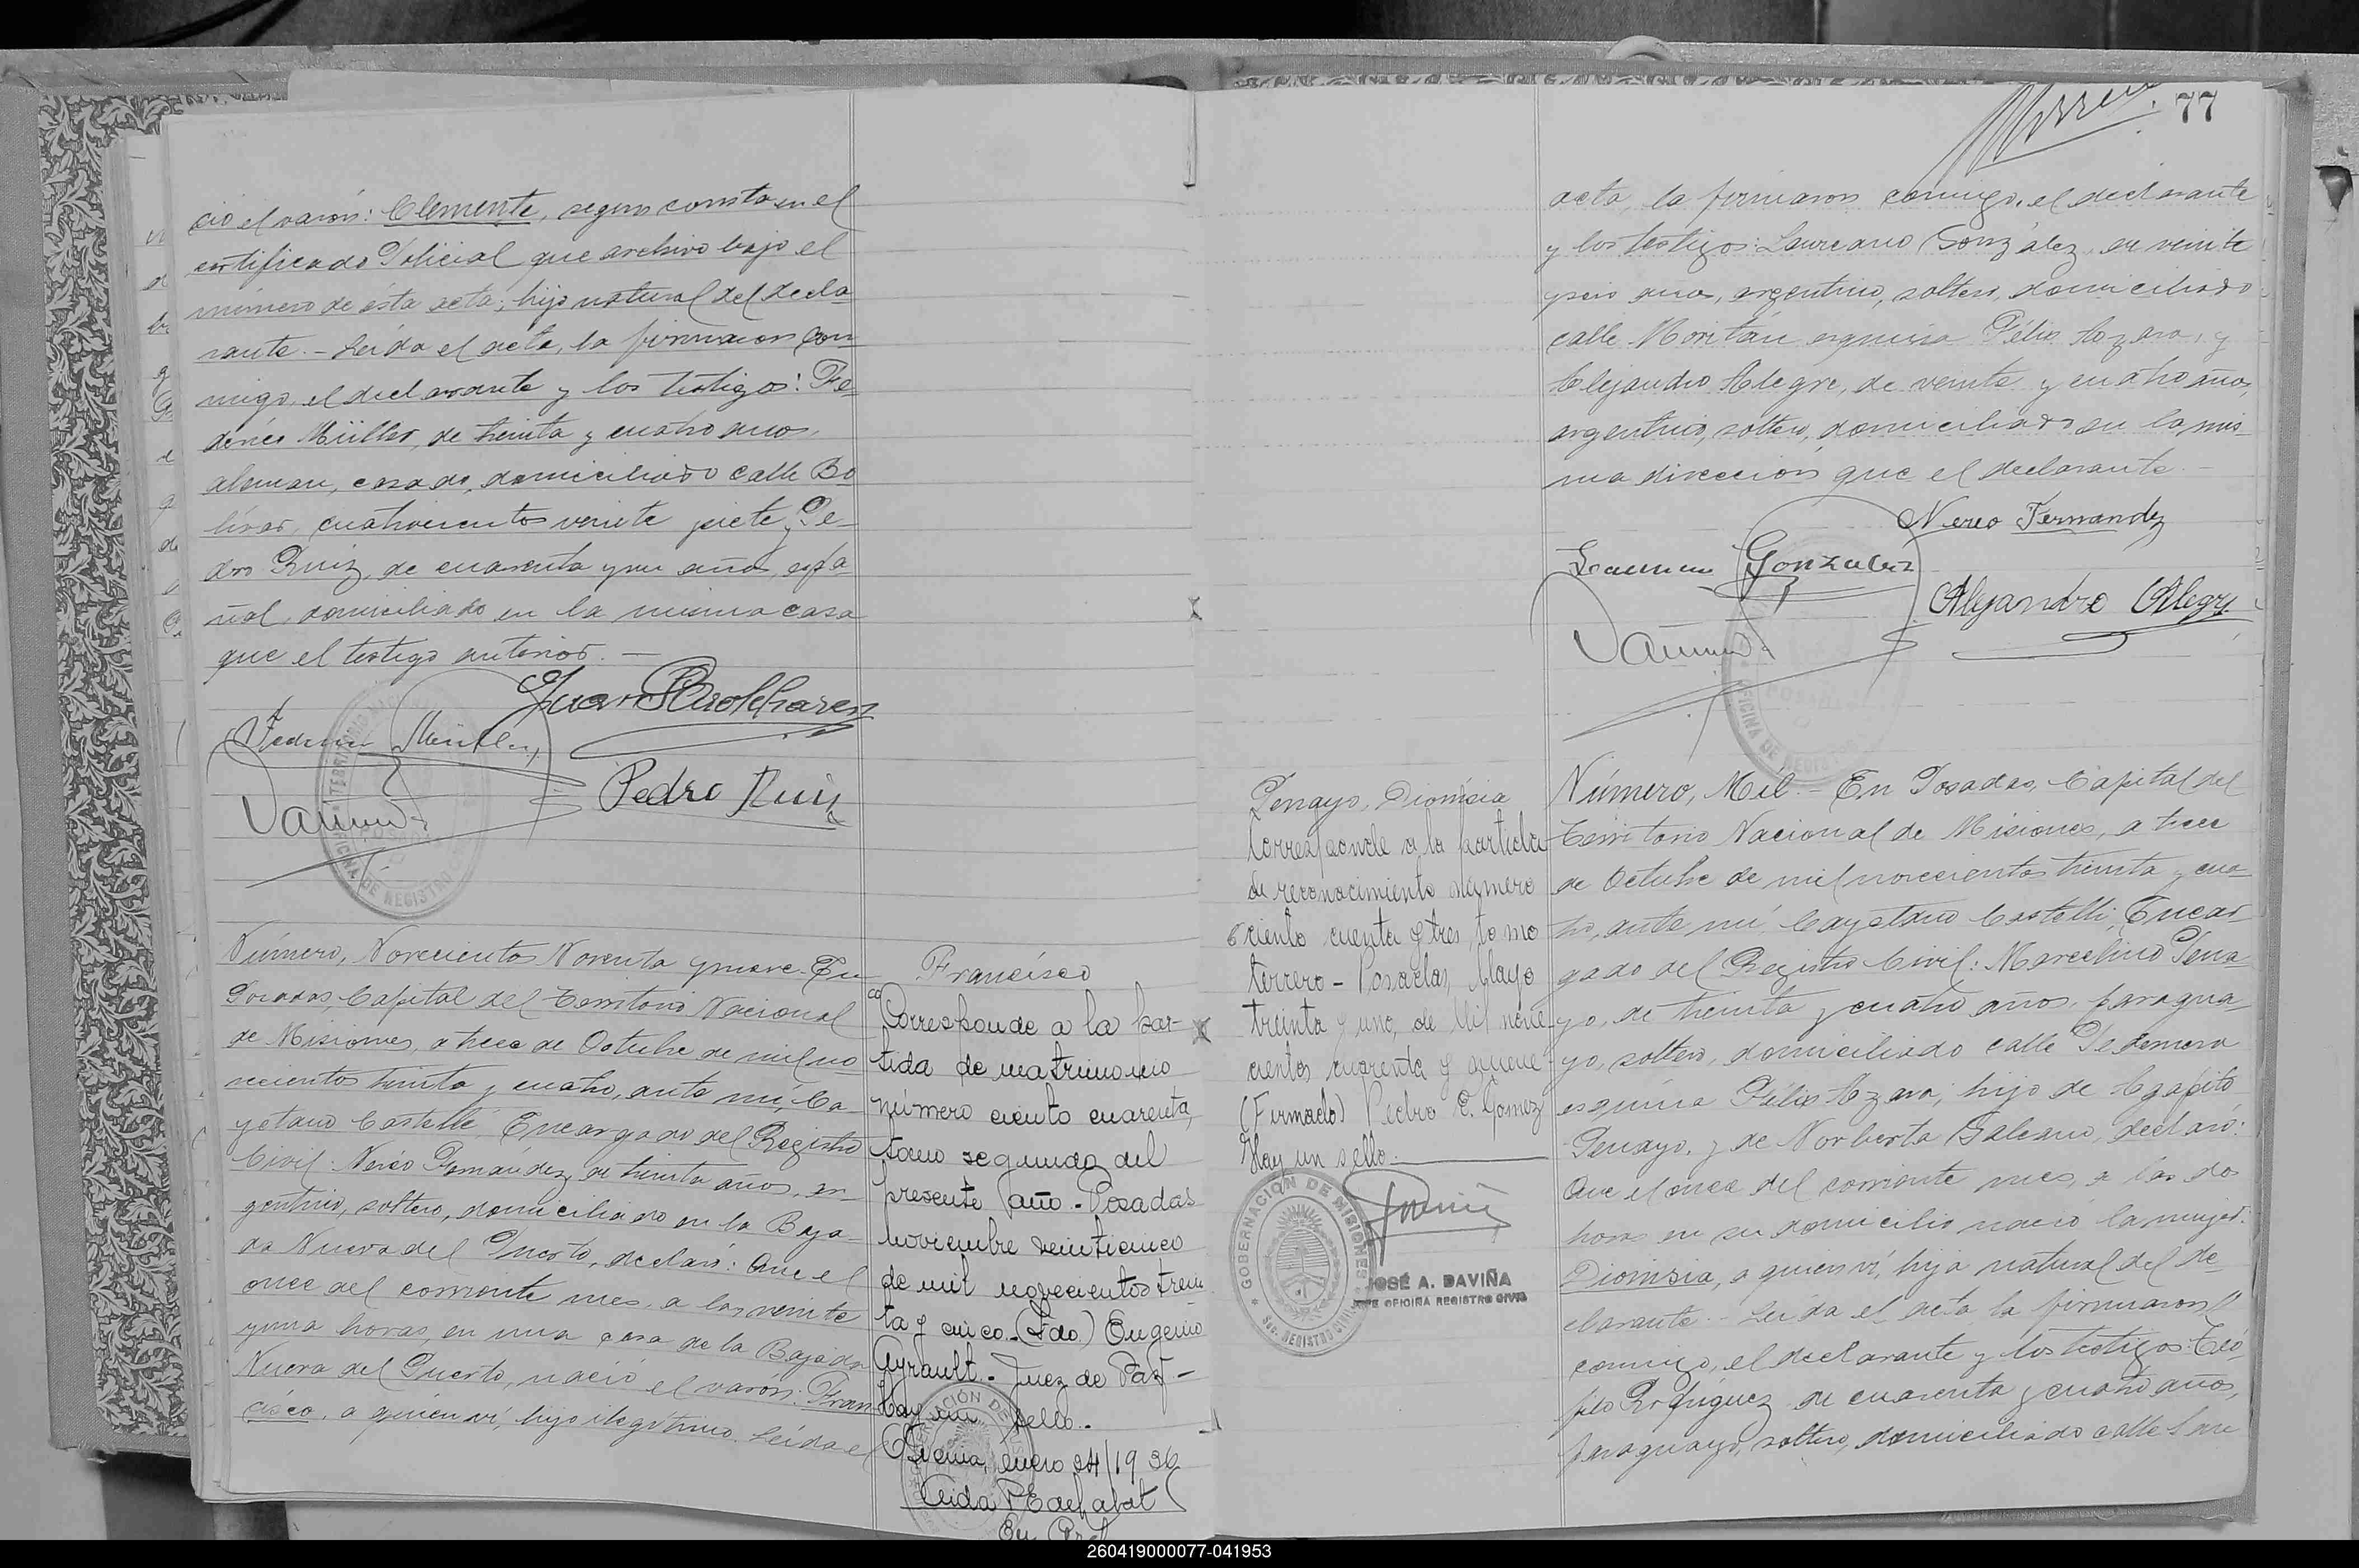 cio el varón: Clemente, segun consta en el
certificado Policial que archivo bajo el
número de ésta acta; hijo natural del decla
rante.- Leída el acta, la firmaron con
migo, el declarante y los testigos: Fe-
derico Müller, de treinta y cuatro años,
aleman, casado, domiciliado calle Bo
lívar, cuatrocientos veinte y siete y Pe-
dro Ruiz, de cuarenta y un años, espa-
ñol, domiciliado en la misma casa
que el testigo anterior.-
Juan
Federico Müller
Pedro Ruiz
OFICINA DE REGISTRO
Número, Novecientos Noventa y nueve. En
Posadas, Capital del Territorio Nacional
de Misiones, a trece de Octubre de mil no
vecientos treinta y cuatro, ante mí, Ca-
yetano Castelli, Encargado del Registro
Civil: Nereo Fernández, de treinta años, ar-
gentino, soltero, domiciliado en la Baja-
da Nueva del Puerto, declaró: Que el
once del corriente mes, a las veinte
y una horas, en una casa de la Bajada
Nueva del Puerto, nació el varón: Fran
cisco, a quien ví, hijo ilegítimo. Leída el
Francisco
Corresponde a la par-
tida de matrimonio
número ciento cuarenta,
tomo segundo del
presente año.- Posadas
noviembre veinticinco
de mil novecientos trein
ta y cinco.-(Fdo.) Eugenio
Ayrault.- Juez de Paz-
Hay un sello.-
enero 24/1936
77
acta, la firmaron conmigo, el declarante
y los testigos: Laureano González, de veinte
y seis años, argentino, soltero, domiciliado
calle Moritán esquina Félix Azara, y
Alejandro Alegre, de veinte y cuatro años,
argentino, soltero, domiciliado en la mis-
ma dirección que el declarante.-
Nereo Fernandez
Laureano Gonzalez
Alejandro Alegre
OFICINA DE REGISTRO
Penayo, Dionisia
Corresponde a la partida
de reconocimiento número
ciento cuenta y tres, tomo
tercero - Posadas, Mayo
treinta y uno, de Mil nove
cientos cuarenta y nueve
(Firmado) Pedro E. Gomez
Hay un sello.
GOBERNACIÓN DE MISIONES
SEC. REGISTRO CIVIL
JOSÉ A. DAVIÑA
JEFE OFICINA REGISTRO CIVIL
Número, Mil.- En Posadas, Capital del
Territorio Nacional de Misiones, a trece
de Octubre de mil novecientos treinta y cua-
tro, ante mí, Cayetano Castelli, Encar
gado del Registro Civil: Marcelino Pena-
yo, de treinta y cuatro años, paragua-
yo, soltero, domiciliado calle Pedernera
esquina Félix Azara; hijo de Agapito
Penayo, y de Norberta Galeano, declaró:
Que el once del corriente mes, a las dos
horas en su domicilio nació la mujer:
Dionisia, a quien ví, hija natural del de-
clarante.- Leída el acta la firmaron
conmigo, el declarante y los testigos: Teó-
filo Rodríguez, de cuarenta y cuatro años,
paraguayo, soltero, domiciliado calle San
260419000077-041953